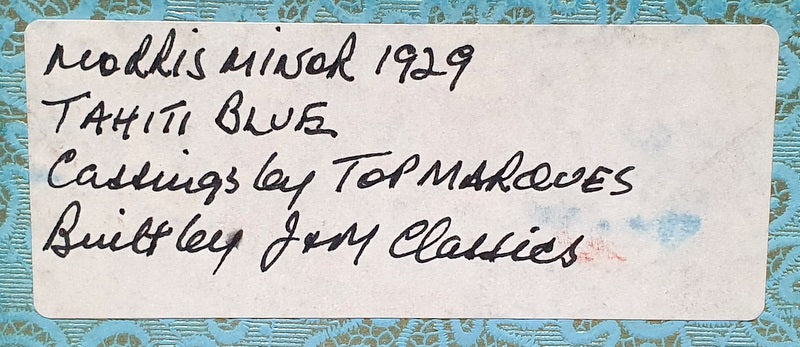 MORRIS MINOR 1929
TAHITI BLUE
Castings by TOP MARQUES
Built by J+M Classics